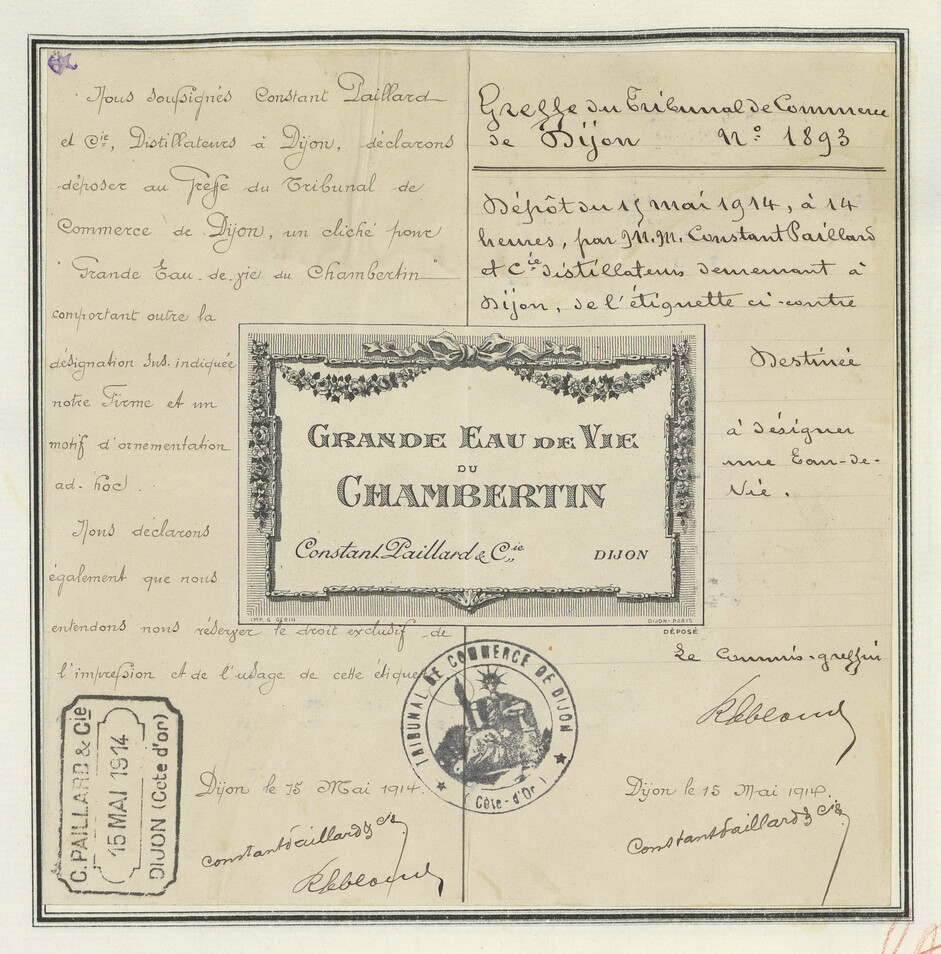 Nous soussignés Constant Paillard
et Cie, Distillateurs à Dijon, déclarons
déposer au Greffe du Tribunal de
Commerce de Dijon, un cliché pour
"Grande Eau-de-vie du Chambertin"
comportant outre la
désignation sus. indiquée
notre Firme et un
motif d'ornementation
ad-hoc.
Nous déclarons
également que nous
entendons nous réserver le droit exclusif de
l'impression et de l'usage de cette étique
Dijon le 15 Mai 1914.
Constant Paillard & Cie
C. PAILLARD & Cie
15 MAI 1914
DIJON (Cote d'or)
GRANDE EAU DE VIE
DU
CHAMBERTIN
Constant Paillard & Cie
DIJON
IMP. G. GÉRIN
DIJON-PARIS
DÉPOSÉ
TRIBUNAL DE COMMERCE DE DIJON
(Côte-d'Or)
Greffe du Tribunal de Commerce
de Dijon No 1893
Dépôt du 15 mai 1914, à 14
heures, par M.M. Constant Paillard
et Cie distillateurs demeurant à
Dijon, de l'étiquette ci-contre
Destinée
à désigner
une Eau-de-
Vie.
Le Commis-greffier
Dijon le 15 Mai 1914.
Constant Paillard & Cie